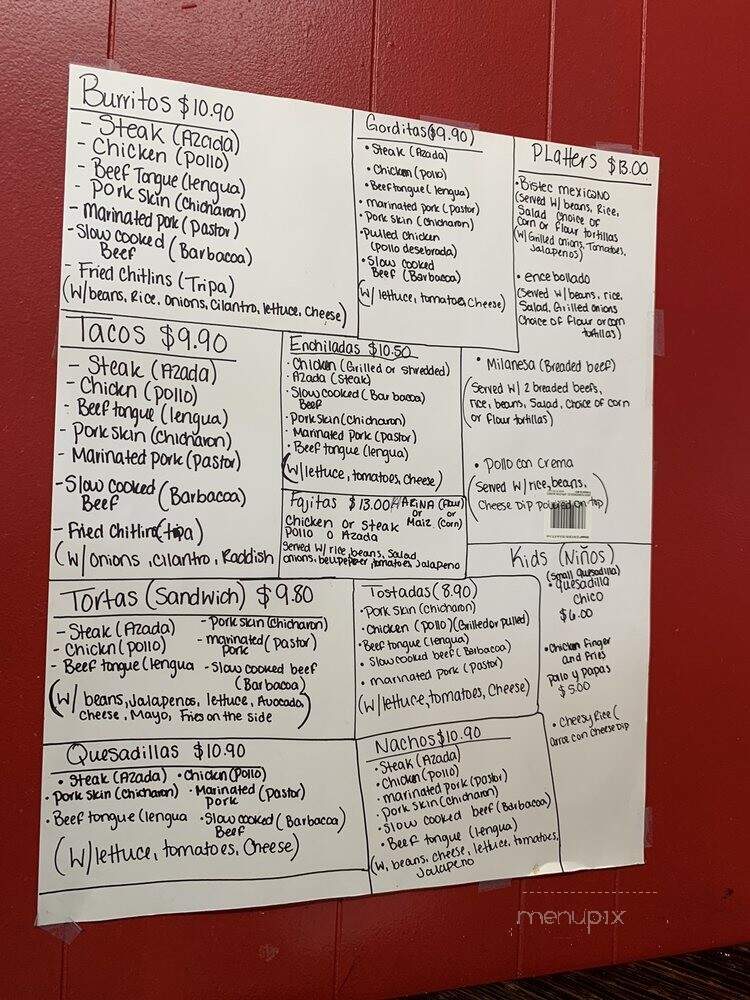 Burritos $10.90
- Steak (Azada)
- Chicken (pollo)
- Beef Tongue (lengua)
- Pork Skin (Chicharon)
- Marinated pork (Pastor)
- Slow cooked Beef (Barbacoa)
- Fried Chitlins (Tripa)
(W/beans, Rice, onions, cilantro, lettuce, Cheese)
Gorditas($9.90)
• Steak (Azada)
• Chicken (pollo)
• Beef tongue (lengua)
• marinated pork (pastor)
• Pork skin (chicharon)
• Pulled chicken
(pollo desebrada)
• Slow cooked
Beef (Barbacoa)
(W/ lettuce, tomatoes, Cheese)
Platters $13.00
• Bistec mexicano
(Served W/ beans, Rice,
Salad choice of
Corn or flour tortillas
(W/ Grilled onions, Tomatoes,
Jalapenos)
• encebollado
(Served w/beans, rice,
Salad, Grilled onions
Choice of flour or corn
tortillas)
• Milanesa (Breaded beef)
(Served W/ 2 breaded beefs,
rice, beans, Salad, Choice of Corn
or flour tortillas)
• Pollo con Crema
(Served w/rice, beans,
Cheese Dip poured on top)
Tacos $9.90
- Steak (Azada)
- Chickn (pollo)
- Beef tongue (lengua)
- Pork skin (chicharon)
- Marinated Pork (Pastor)
- Slow cooked Beef (Barbacoa)
- Fried Chitlin (tripa)
(W/onions, cilantro, Raddish
Enchiladas $10.50
· Chicken (Grilled or shredded)
· Azada (Steak)
· Slow cooked (Barbacoa)
Beef
· Pork Skin (Chicharon)
· Marinated Pork (pastor)
· Beef tongue (lengua)
(W/lettuce, tomatoes, Cheese)
Fajitas $13.00 HARINA (Flour)
or or
Maiz (Corn)
Chicken or Steak
Pollo o Azada
Served W/ rice, beans, Salad,
onions, bell pepper, tomatoes, Jalapeno
Kids (Niños)
(Small Quesadilla)
• Quesadilla
Chico
$6.00
• Chicken finger
and fries
pollo y papas
$5.00
• Cheesy Rice (
arroz con Cheese Dip
Tortas (Sandwich) $9.80
- Steak (Azada)
- Chickn (pollo)
- Beef tongue (lengua
- Pork skin (Chicharon)
- marinated pork (pastor)
- Slow cooked beef
(Barbacoa)
(W/ beans, Jalapenos, lettuce, Avocado,
Cheese, Mayo, Fries on the side
Tostadas (8.90)
• Pork Skin (chicharon)
• Chicken (pollo) (Grilled or pulled)
• Beef tongue (lengua)
• Slow cooked beef (Barbacoa)
• marinated pork (pastor)
(W/ lettuce, tomatoes, Cheese)
Quesadillas $10.90
• Steak (Azada) • Chicken (Pollo)
• Pork skin (Chicharron) • Marinated pork (Pastor)
• Beef tongue (lengua • Slow cooked Beef (Barbacoa)
(W/lettuce, tomatoes, Cheese)
Nachos $10.90
• Steak (Azada)
• Chicken (pollo)
• marinated pork (pastor)
• pork skin (chicharon)
• Slow cooked beef (Barbacoa)
• Beef tongue (lengua)
(W, beans, cheese, lettuce, tomatoes,
Jalapeno
menupix